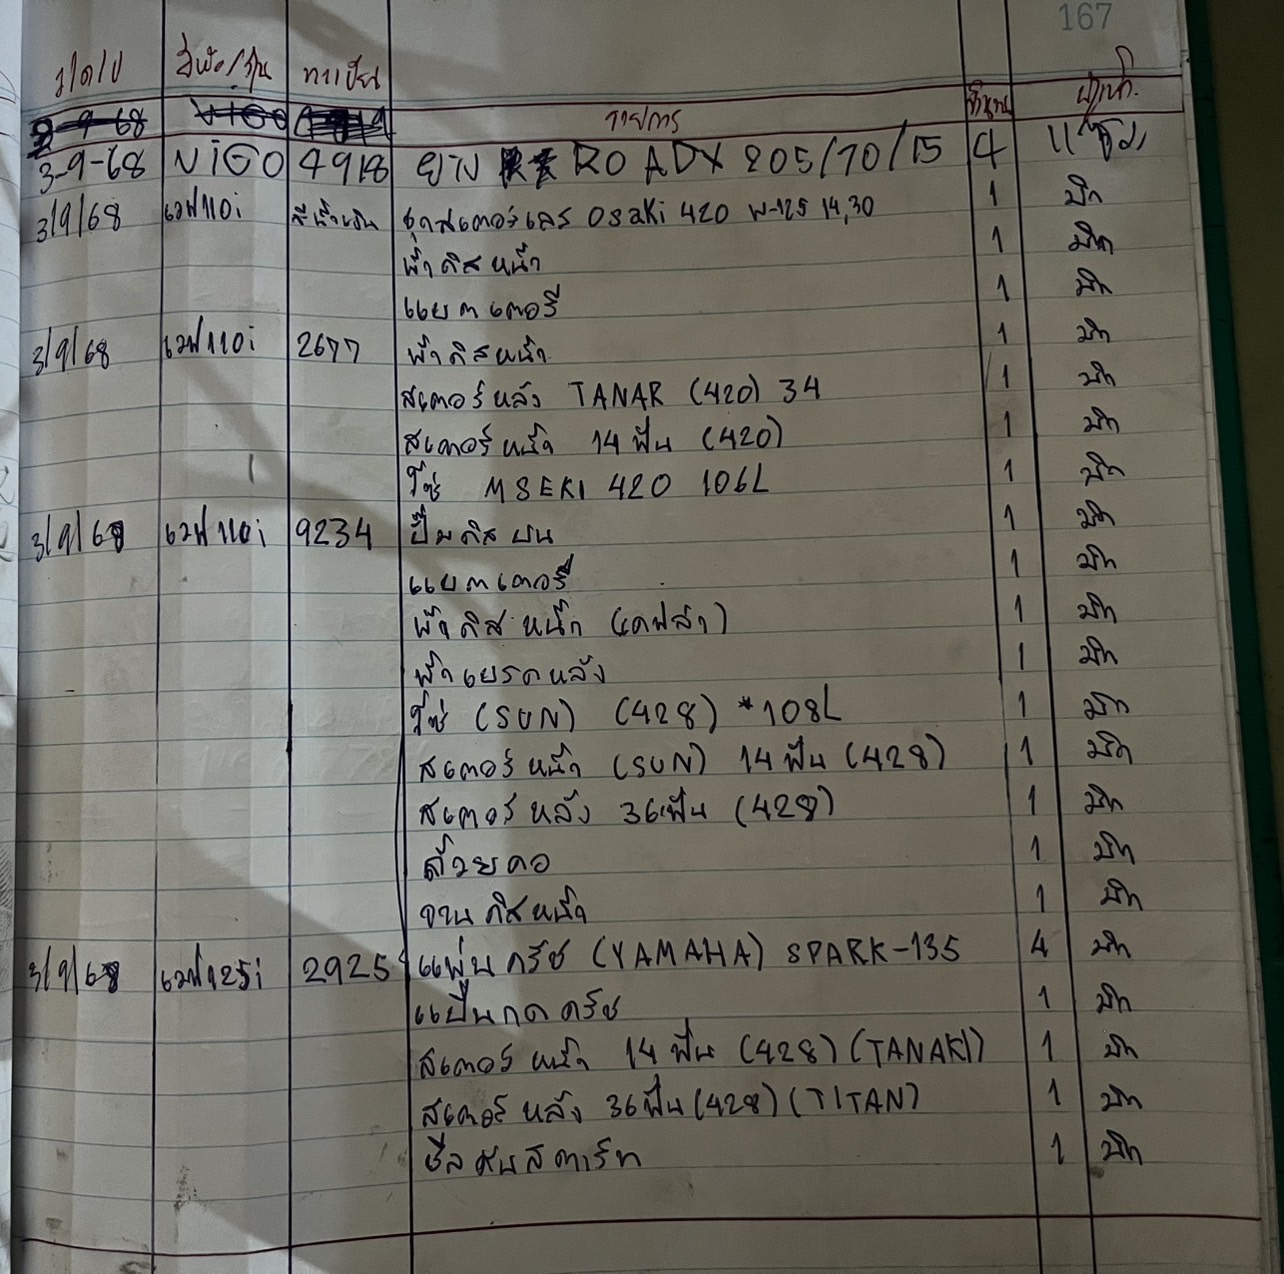 167
ว/ด/ป ยี่ห้อ/รุ่น ทะเบียน รายการ จำนวน ผู้เบิก
3-9-68 VIGO 4918 ยาง ROADX 205/70/15 4
3/9/68 เวฟ110i สีน้ำเงิน ชุดสเตอร์เลส Osaki 420 W-125 14,30 1 บิ๊ก
ผ้าดิสหน้า 1 บิ๊ก
แบตเตอรี่ 1 บิ๊ก
3/9/68 เวฟ110i 2677 ผ้าดิสหน้า 1 บิ๊ก
สเตอร์หลัง TANAR (420) 34 1 บิ๊ก
สเตอร์หน้า 14 ฟัน (420) 1 บิ๊ก
โซ่ MSEKI 420 106L 1 บิ๊ก
3/9/68 เวฟ110i 9234 ปั๊มดิสบน 1 บิ๊ก
แบตเตอรี่ 1 บิ๊ก
ผ้าดิสหน้า (เคฟล่า) 1 บิ๊ก
ผ้าเบรคหลัง 1 บิ๊ก
โซ่ (SUN) (428) *108L 1 บิ๊ก
สเตอร์หน้า (SUN) 14 ฟัน (428) 1 บิ๊ก
สเตอร์หลัง 36ฟัน (428) 1 บิ๊ก
ถ้วยคอ 1 บิ๊ก
จานดิสหน้า 1 บิ๊ก
3/9/68 เวฟ125i 2925 แผ่นครัช (YAMAHA) SPARK-135 4 บิ๊ก
แป้นกดครัช 1 บิ๊ก
สเตอร์หน้า 14 ฟัน (428) (TANAKI) 1 บิ๊ก
สเตอร์หลัง 36ฟัน (428) (TITAN) 1 บิ๊ก
ซีลคันสตาร์ท 1 บิ๊ก